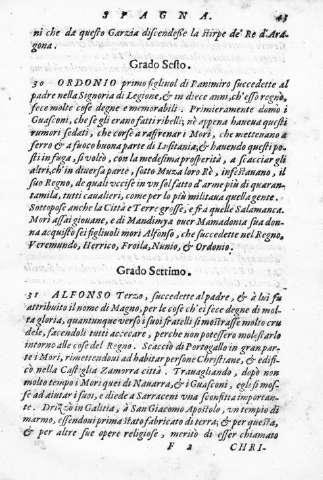 SPAGNA. 43
ni che da questo Garzia discendesse la stirpe de' Re d'Ara-
gona.
Grado Sesto.
30 ORDONIO primo figliuol di Ranimiro succedette al
padre nella Signoria di Legione, & in diece anni, ch'esso regnò,
fece molte cose degne e memorabili. Primieramente domò i
Guasconi, che se gli erano fatti ribelli; nè appena haueua questi
rumori sedati, che corse a rafrenar i Mori, che metteuano a
ferro & a fuoco buona parte di Lusitania; & hauendo questi po-
sti in fuga, si volsò, con la medesima prosperità, a scacciar gli
altri, ch'in diuersa parte, sotto Muza loro Rè, infestauano, il
suo Regno, de quali vccise in vn sol fatto d'arme più di quaran-
tamila, tutti cauallieri, come per lo più militaua quella gente.
Sottopose anche la Città e Terre grosse, e fra quelle Salamanca.
Morì assai giouane, e di Mandinya ouer Mamadonia sua don-
na acquistò sei figliuoli mori Alfonso, che succedette nel Regno,
Veremundo, Herrico, Froila, Nunio, & Ordonio.
Grado Settimo.
31 ALFONSO Terzo, succedette al padre, & à lui fu
attribuito il nome di Magno, per le cose ch'ei fece degne di mol-
ta gloria, quantunque verso i suoi fratelli si mostrasse molto cru
dele, facendoli tutti accecare, perche non potessero molestarlo
intorno alle cose del Regno. Scacciò di Portogallo in gran par-
te i Mori, rimettendoui ad habitar persone Christiane, & edifi-
cò nella Castiglia Zamorra città. Trauagliando, dopò non
molto tempo i Mori quei di Nauarra, & i Guasconi, egli si mos-
se ad aiutar i suoi, e diede a Sarraceni vna sconfitta importan-
te. Drizzò in Galitia, à San Giacomo Apostolo, vn tempio di
marmo, essendoui prima stato fabricato di terra; & per questa,
& per altre sue opere religiose, meritò di esser chiamato
F 2 CHRI-